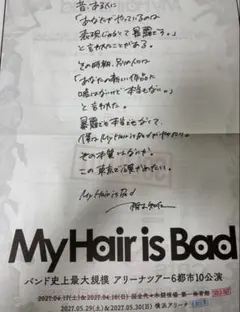 昔、ある人に
「あなたがやっているのは
表現じゃなくて暴露です。」
と言われたことがある。
その時期、別の人には
「あなたの新しい作品に
嘘はないけど本当もない。」
と言われた。
暴露でも本当でもなくて、
僕はMy Hair is Badがやりたい。
My Hair is Bad
My Hair is Bad
バンド史上最大規模 アリーナツアー6都市10公演
2027.04.17(土)&2027.04.18(日) 国立代々木競技場 第一体育館
2027.05.29(土)&2027.05.30(日) 横浜アリーナ